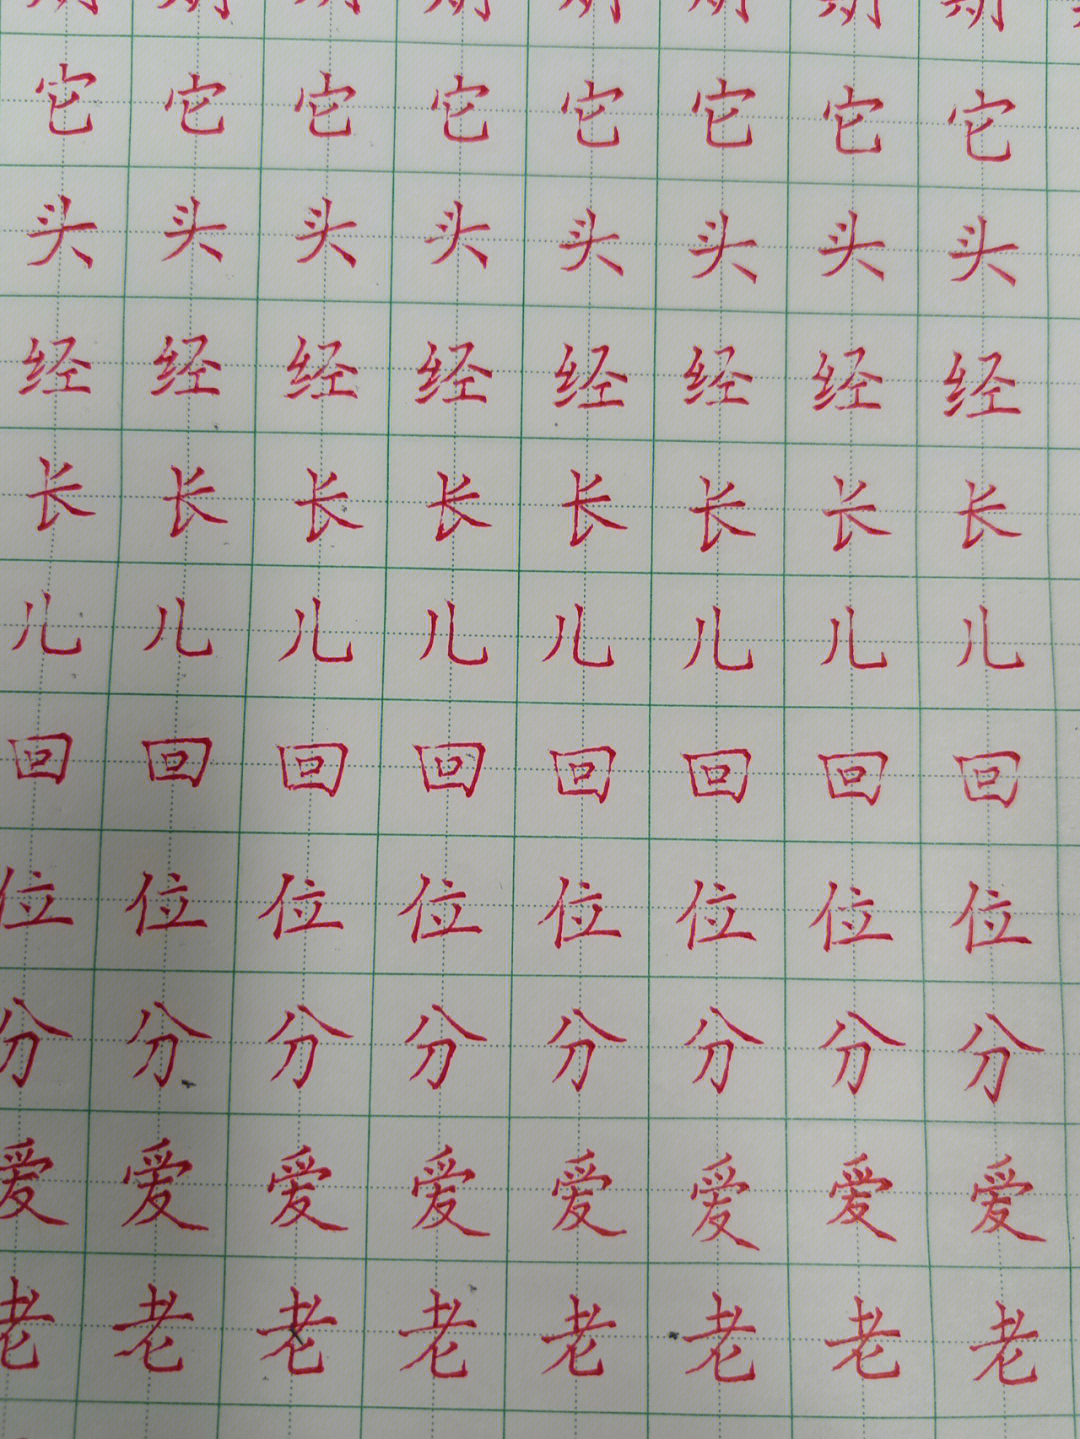 它它它它它它它它
头头头头头头头头
经经经经经经经经
长长长长长长长长
儿儿儿儿儿儿儿儿
回回回回回回回回
位位位位位位位位
分分分分分分分分
爱爱爱爱爱爱爱爱
老老老老老老老老